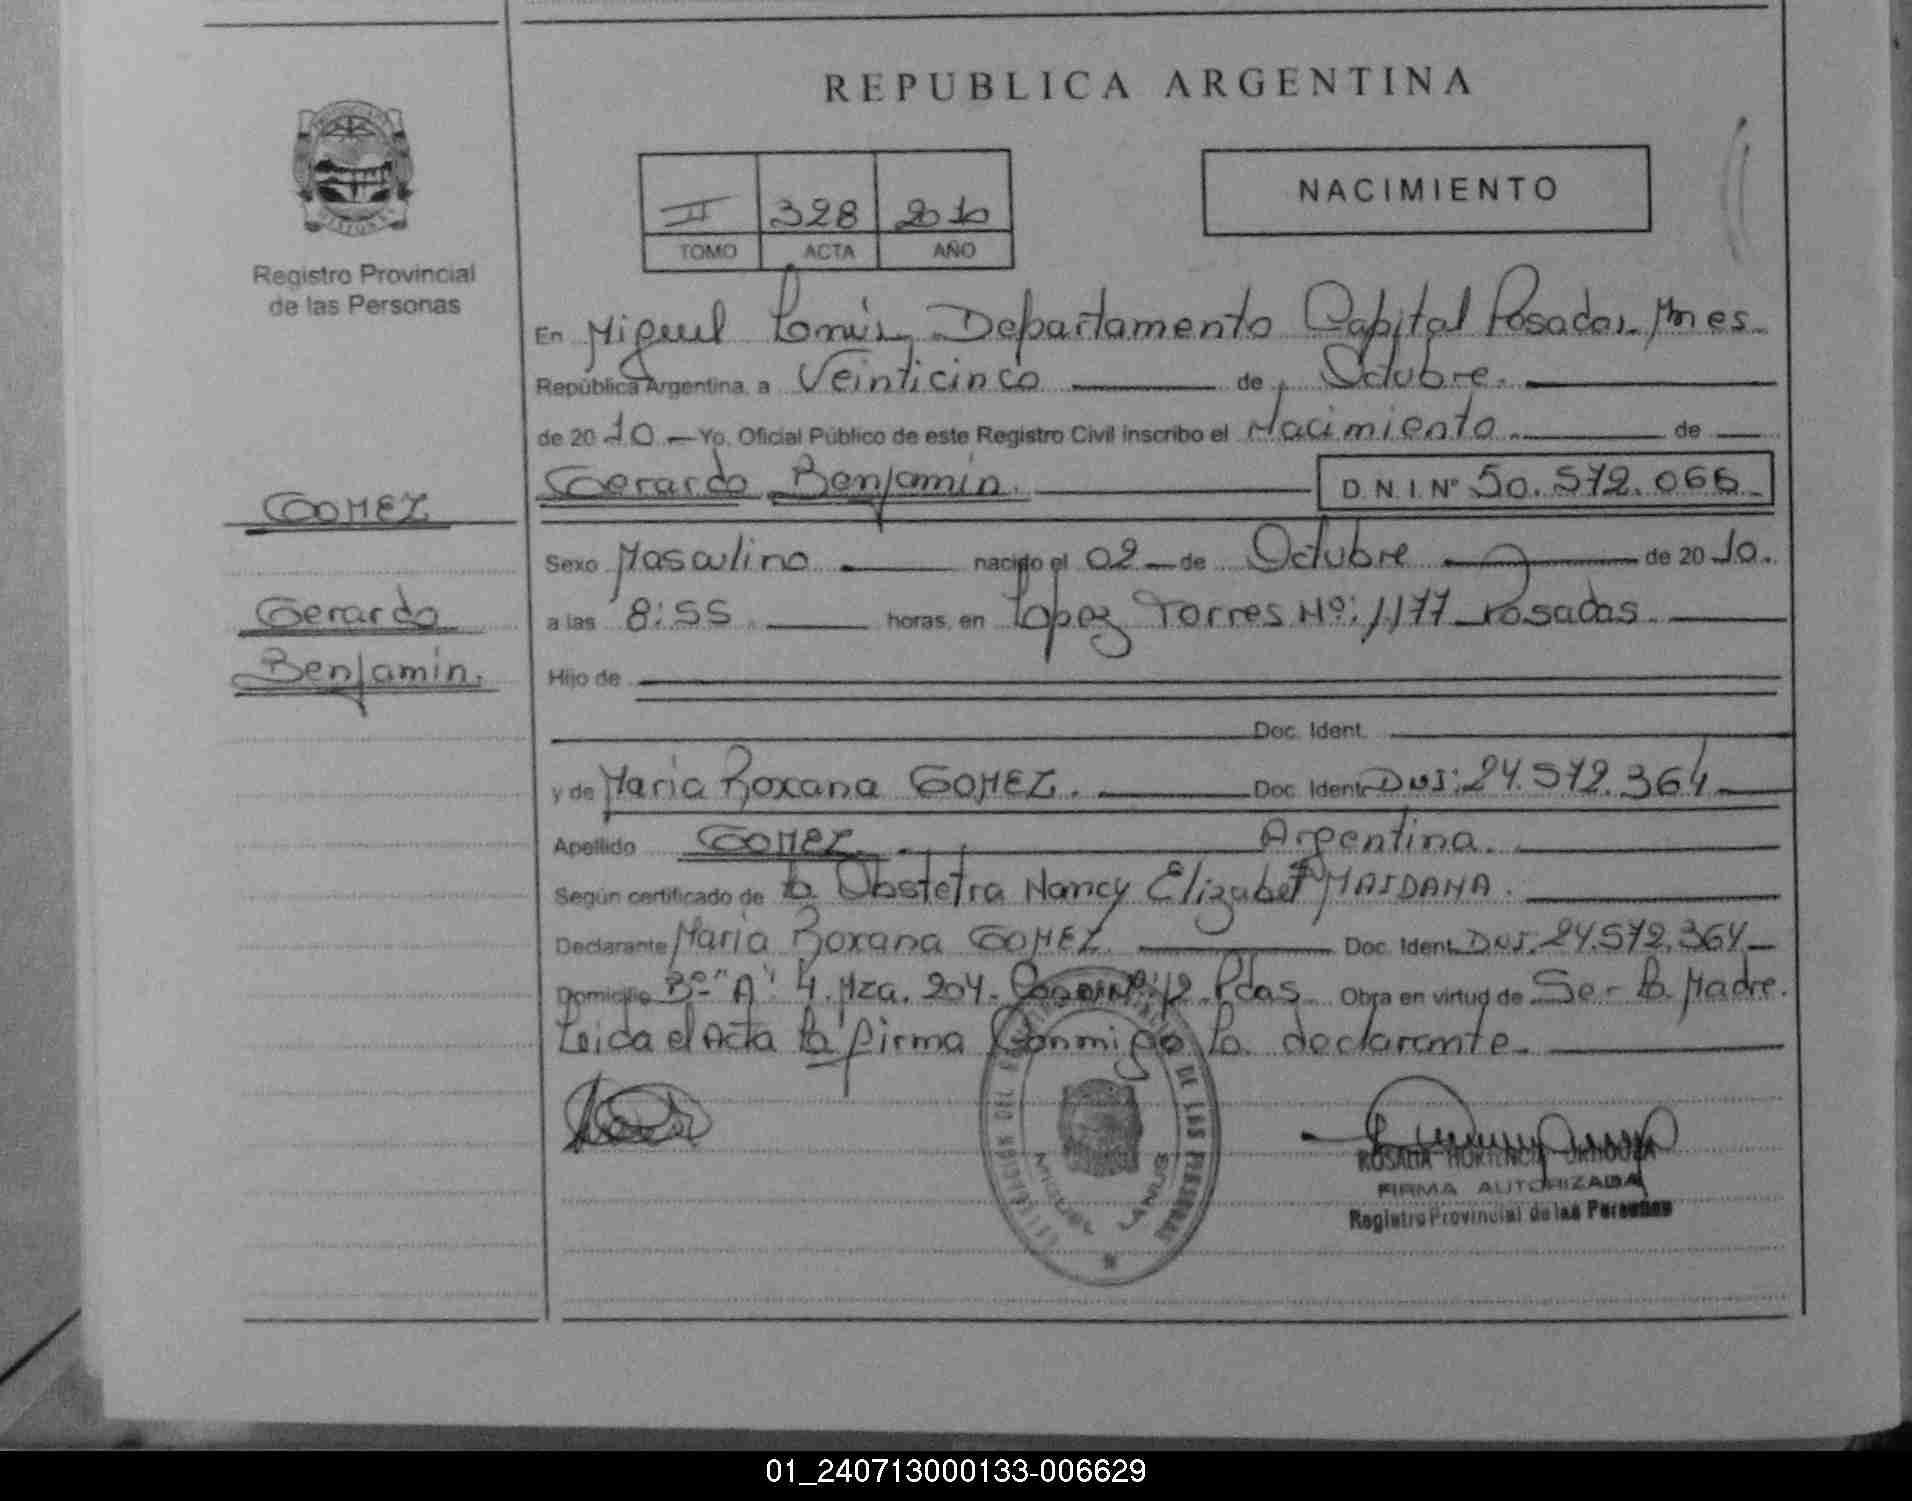 REPUBLICA ARGENTINA
Registro Provincial
de las Personas
II 328 2010
TOMO ACTA AÑO
NACIMIENTO
En Miguel Lanús Departamento Capital Posadas Mnes.
República Argentina, a Veinticinco de Octubre.
de 2010 Yo, Oficial Público de este Registro Civil inscribo el Nacimiento de
Gerardo Benjamin. D.N.I. Nº 50.572.066
GOMEZ
Gerardo
Benjamin.
Sexo Masculino nacido el 02 de Octubre de 2010.
a las 8:55 horas, en Lopez Torres Nº: 1177 Posadas.
Hijo de
Doc. Ident.
y de Maria Roxana GOMEZ. Doc. Ident. DNI: 24.572.364
Apellido GOMEZ. Argentina.
Según certificado de la Obstetra Nancy Elizabet MAIDANA.
Declarante Maria Roxana GOMEZ. Doc. Ident. DNI. 24.572.364
Domicilio Bº "A" 4. Mza. 204. Nº: 12. Pdas. Obra en virtud de Ser la Madre.
Leida el Acta la firma Conmigo la declarante.
DE LAS PERSONAS
MIGUEL LANUS
ROSALIA HORTENCIA
FIRMA AUTORIZADA
Registro Provincial de las Personas
01_240713000133-006629